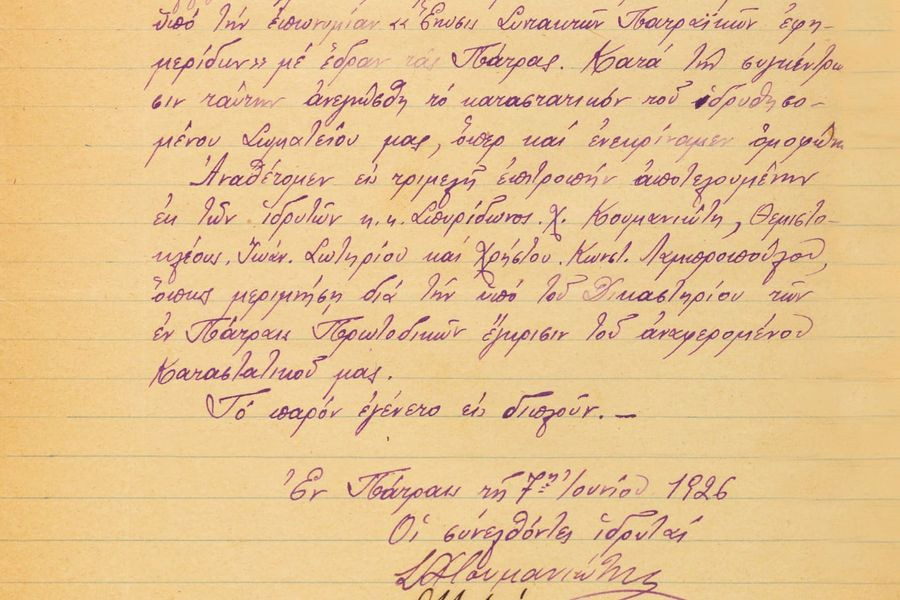 ὑπό τήν ἐπωνυμίαν «Ἕνωσις Συντακτῶν Πατραϊκῶν ἐφη-
μερίδων» μέ ἕδραν τάς Πάτρας. Κατά τήν συγκέντρω
σιν ταύτην ἀνεγνώσθη τό καταστατικόν τοῦ ἱδρυθησο-
μένου Σωματείου μας, ὅπερ καί ἐνεκρίναμεν ὁμοφώνως
Ἀναθέτομεν εἰς τριμελῆ ἐπιτροπήν ἀποτελουμένην
ἐκ τῶν ἱδρυτῶν κ. κ. Σπυρίδωνος. Χ. Κουμανιώτη, Θεμιστο-
κλέους. Ἰωάν. Σωτηρίου καί Χρήστου. Κωνστ. Λαμπροπούλου,
ὅπως μεριμνήσῃ διά τήν ὑπό τοῦ Δικαστηρίου τῶν
ἐν Πάτραις Πρωτοδικῶν ἔγκρισιν τοῦ ἀναφερομένου
Καταστατικοῦ μας.
Τό παρόν ἐγένετο εἰς διπλοῦν. —
Ἐν Πάτραις τῇ 7ῃ Ἰουνίου 1926
Οἱ συνελθόντες ἱδρυταί
ΣΧΚουμανιώτης